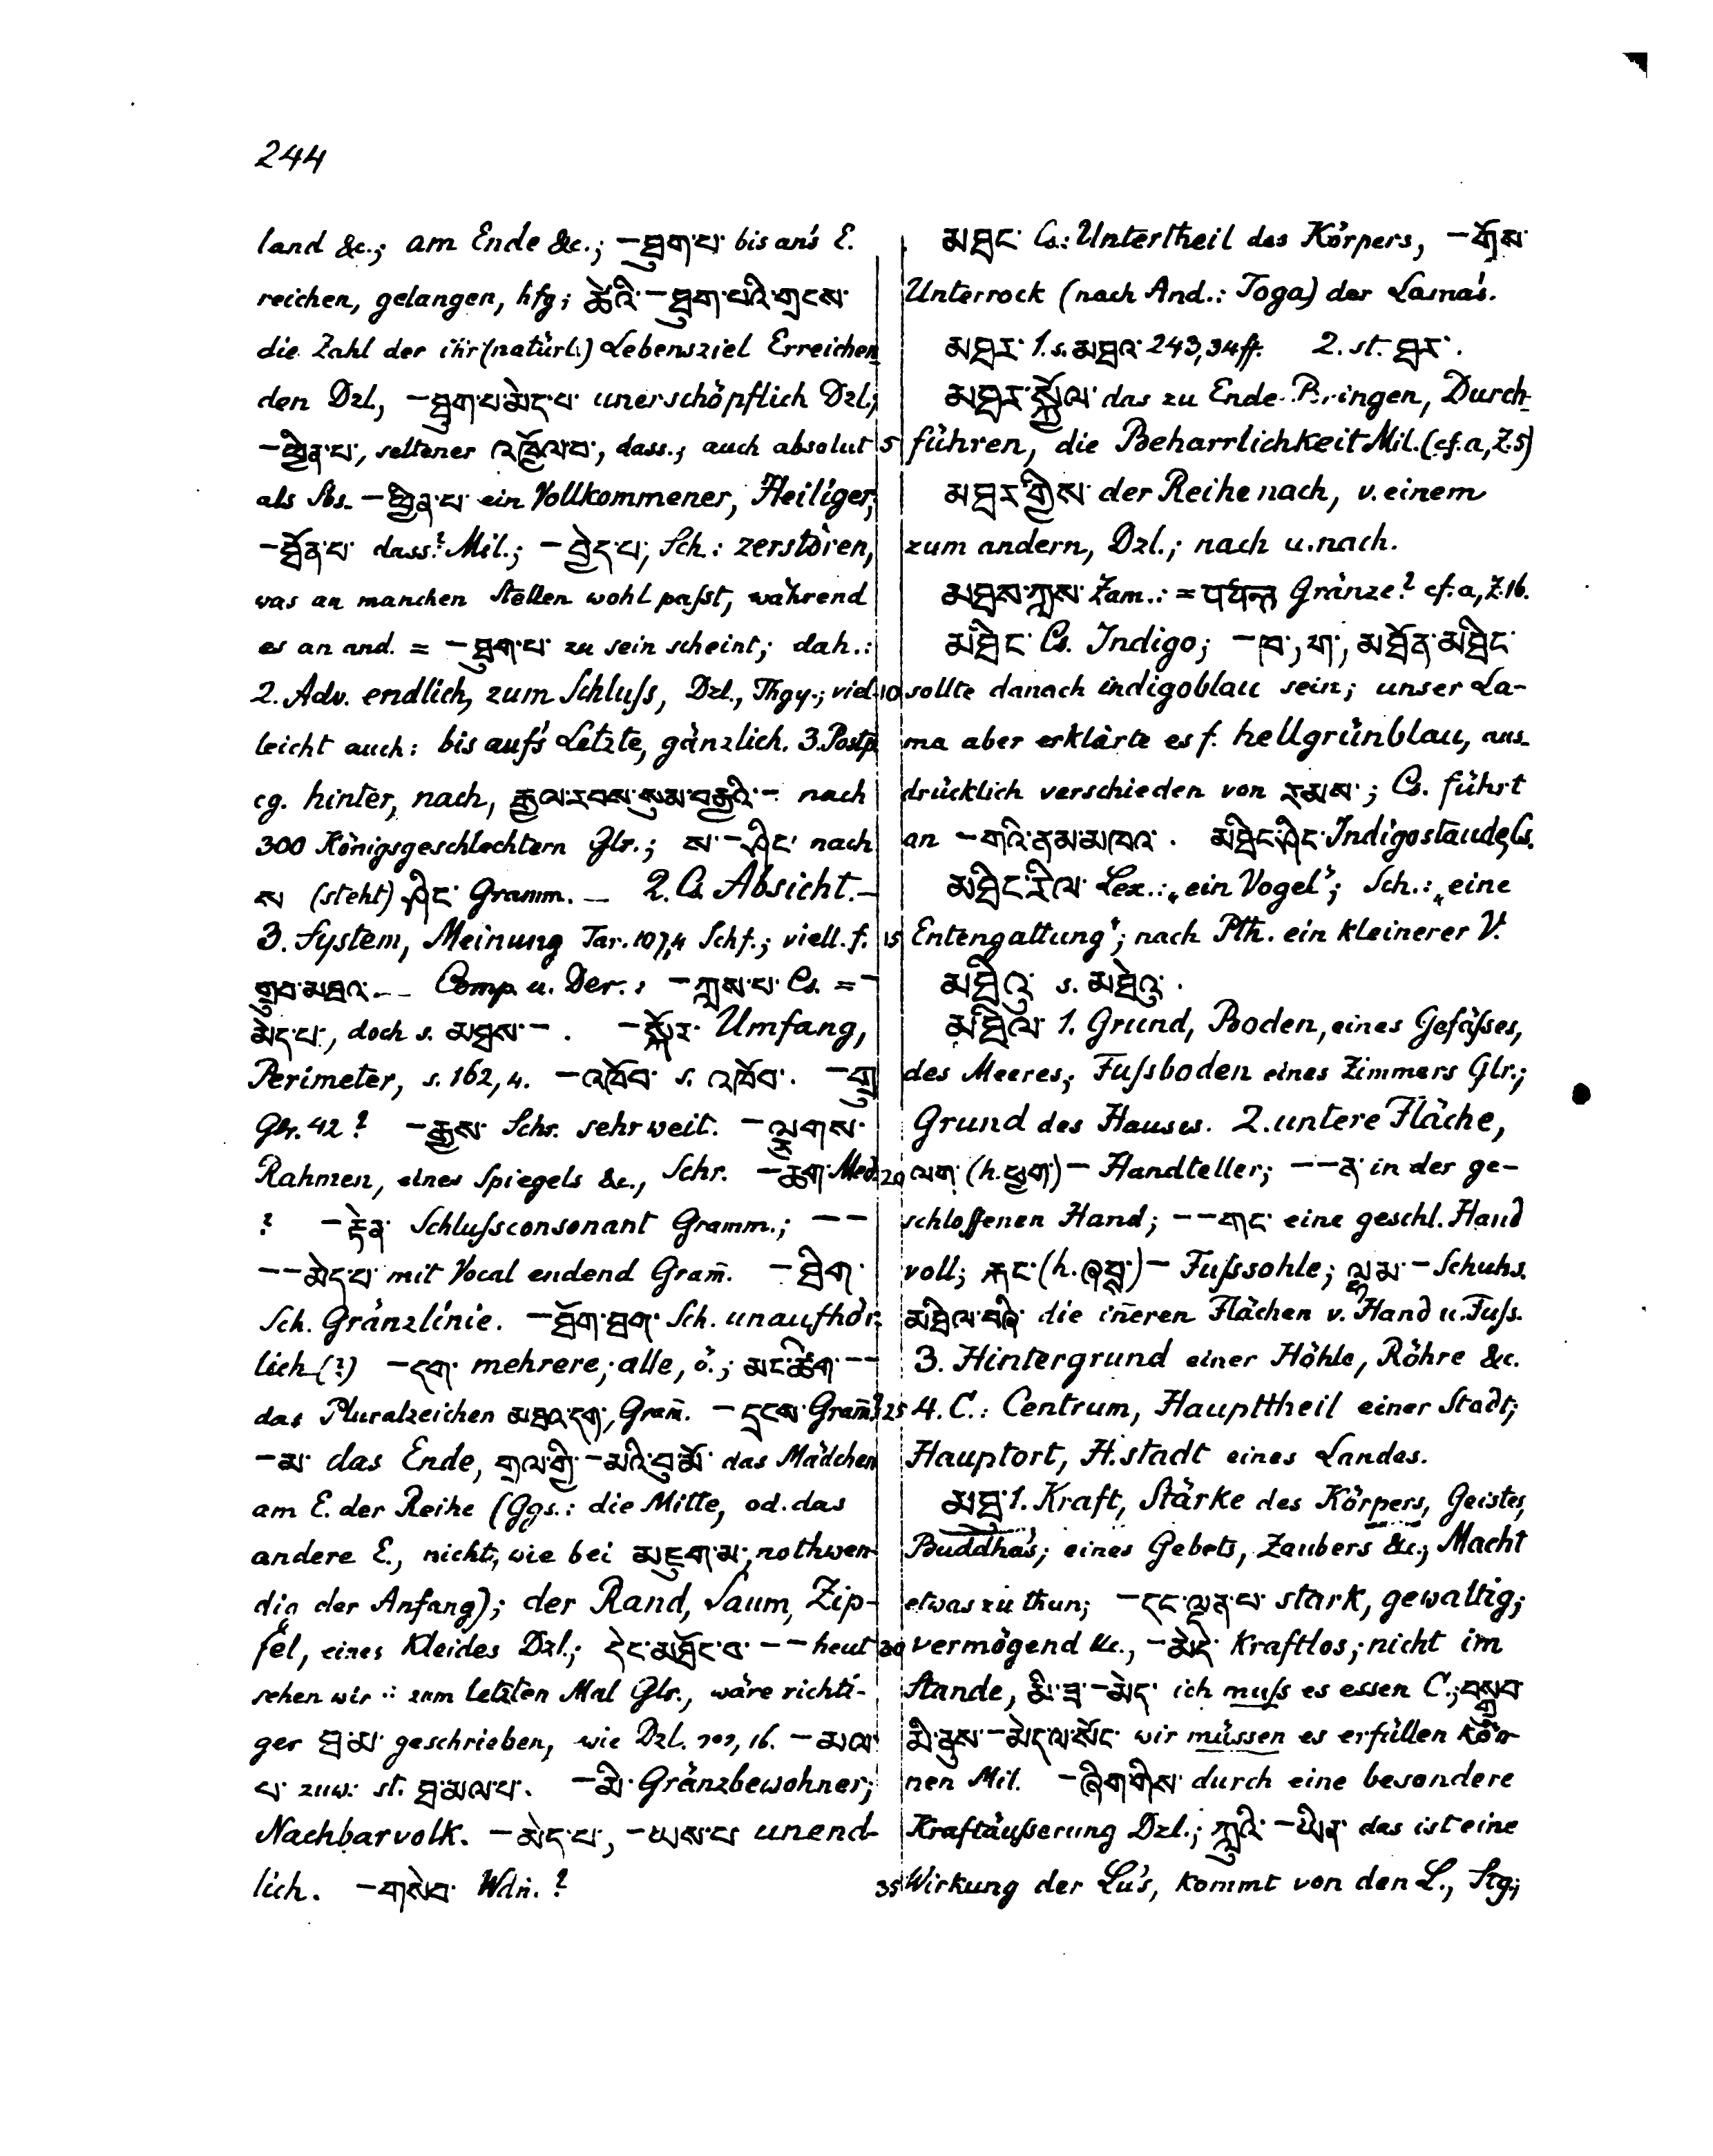 244
land &c.; am Ende &c.; –ཐུག་པ་ bis an's E.
reichen, gelangen, hfg; ཚེའི་–ཐུག་པའི་གྲངས་
die Zahl der ihr (natürl.) Lebensziel Erreichen-
den Dzl., –ཐུག་པ་མེད་པ་ unerschöpflich Dzl.;
–ཕྱིན་པ་, seltener འཁྱོལ་བ་, dass.; auch absolut
als Sbs. –ཕྱིན་པ་ ein Vollkommener, Heiliger;
–ཐོན་པ་ dass.? Mil.; –བྱེད་པ་, Sch.: zerstören,
was an manchen Stellen wohl paſst, während
es an and. = –ཐུག་པ་ zu sein scheint; dah.:
2. Adv. endlich, zum Schluſs, Dzl., Thgy.; viel-
leicht auch: bis auf's Letzte, gänzlich. 3. Postp.
cg. hinter, nach, རྒྱལ་རབས་སུམ་བརྒྱའི་– nach
300 Königsgeschlechtern Glr.; ས་–ཤིང་ nach
ས (steht) ཤིང་ Gramm. — 2. Cs Absicht. —
3. System, Meinung Tar. 107,4 Schf.; viell. f.
གྲུབ་མཐའ་ — Comp. u. Der.: –ཀླས་པ་ Cs. = –
མེད་པ་, doch s. མཐས་–. –སྐོར་ Umfang,
Perimeter, s. 162, 4. –འཁོབ་ s. འཁོབ་. –གྲུ
Glr. 42? –རྒྱས་ Schr. sehr weit. –ལྕགས་
Rahmen, eines Spiegels &c., Schr. –ཆག་ Med.
? –རྟེན་ Schluſsconsonant Gramm.; – –
– –མེད་པ་ mit Vocal endend Gram̄. –ཐིག་
Sch. Gränzlinie. –ཐོག་ཐག་ Sch. unaufhör-
lich (?) –དག་ mehrere; alle, ö.; མང་ཚིག་– –
das Pluralzeichen མཐའ་དག་, Gram̄. –དྲངས་ Gram̄?
–མ་ das Ende, གྲལ་གྱི་–མའི་བུ་མོ་ das Mädchen
am E. der Reihe (Ggs.: die Mitte, od. das
andere E., nicht, wie bei མཇུག་མ་, nothwen-
dig der Anfang); der Rand, Saum, Zip-
fel, eines Kleides Dzl.; དེང་མཐོང་བ་– –heut
sehen wir ∴ zum letzten Mal Glr., wäre richti-
ger ཐ་མ་ geschrieben, wie Dzl. 16. –མལ་
པ་ zuw. st. ཐ་མལ་པ་. –མི་ Gränzbewohner;
Nachbarvolk. –མེད་པ་, –ཡས་པ་ unend-
lich. –གསེབ་ Wdn̄.?
མཐང་ Cs.: Untertheil des Körpers, –གོས་
Unterrock (nach And.: Toga) der Lama's.
མཐར་ 1. s. མཐའ་ 243,34ff. 2. st. ཐར་.
མཐར་སྐྱོལ་ das zu Ende-Bringen, Durch-
5 führen, die Beharrlichkeit Mil. (cf. a, Z. 5)
མཐར་གྱིས་ der Reihe nach, v. einem
zum andern, Dzl.; nach u. nach.
མཐས་ཀླས་ Zam.: = पर्यन्त Gränze? cf. a, Z. 16.
མཐིང་ Cs. Indigo; –ཁ་, ག་, མཐོན་མཐིང་
10 sollte danach indigoblau sein; unser La-
ma aber erklärte es f. hellgrünblau, aus-
drücklich verschieden von རམས་; Cs. führt
an –གའི་ནམ་མཁའ་. མཐིང་ཤིང་ Indigostaude Cs.
མཐིང་རིལ་ Lex.: „ein Vogel"; Sch.: „eine
15 Entengattung"; nach Pth. ein kleinerer V.
མཐིའུ་ s. མཐེའུ་.
མཐིལ་ 1. Grund, Boden, eines Gefäſses,
des Meeres; Fuſsboden eines Zimmers Glr.;
Grund des Hauses. 2. untere Fläche,
20 ལག་ (h. ཕྱག་)– Handteller; – –ན་ in der ge-
schloſſenen Hand; – –གང་ eine geschl. Hand
voll; རྐང་ (h. ཞབས་)– Fuſssohle; ལྷམ་– Schuhs.
མཐིལ་བཞི་ die in̄eren Flächen v. Hand u. Fuſs.
3. Hintergrund einer Höhle, Röhre &c.
25 4. C.: Centrum, Haupttheil einer Stadt;
Hauptort, H.stadt eines Landes.
མཐུ་ 1. Kraft, Stärke des Körpers, Geistes,
Buddha's; eines Gebets, Zaubers &c.; Macht
etwas zu thun; –དང་ལྡན་པ་ stark, gewaltig;
30 vermögend &c., –མེད་ Kraftlos; nicht im
Stande, མི་ཟ་–མེད་ ich muſs es essen C.; བསྒྲུབ་
མི་ནུས་–མེད་ལ་སོང་ wir müssen es erfüllen kön-
nen Mil. –ཞིག་གིས་ durch eine besondere
Kraftäuſserung Dzl.; ཀླུའི་–ཡིན་ das ist eine
35 Wirkung der Lu's, kommt von den L., Stg.;